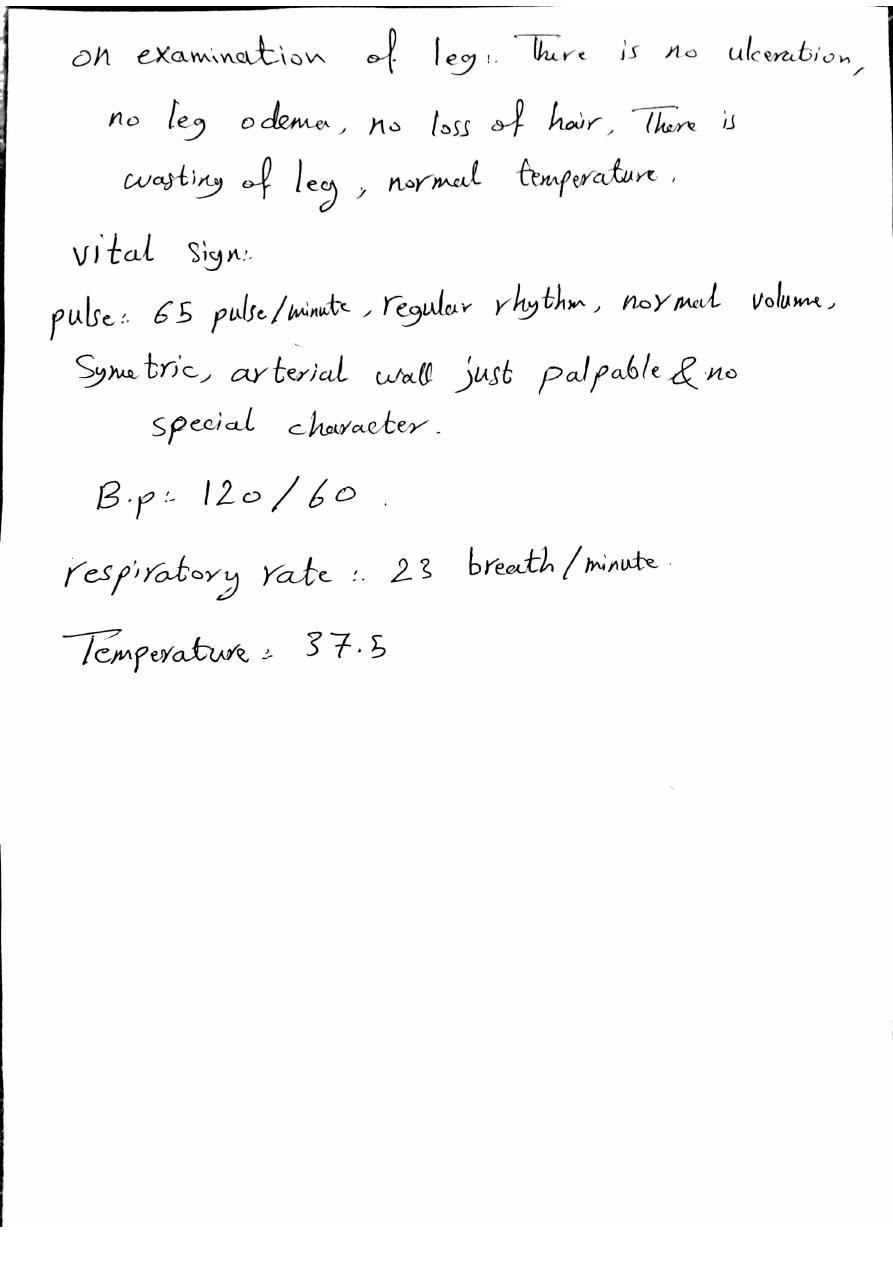 on examination of leg:. There is no ulceration,
no leg odema, no loss of hair, There is
wasting of leg, normal temperature.
vital sign:.
pulse:. 65 pulse/minute, regular rhythm, normal volume,
Symetric, arterial wall just palpable & no
special character.
B.p:- 120/60.
respiratory rate:. 23 breath/minute.
Temperature:- 37.5